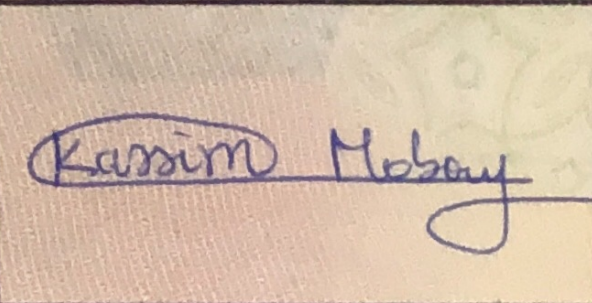 Kassim Mobay